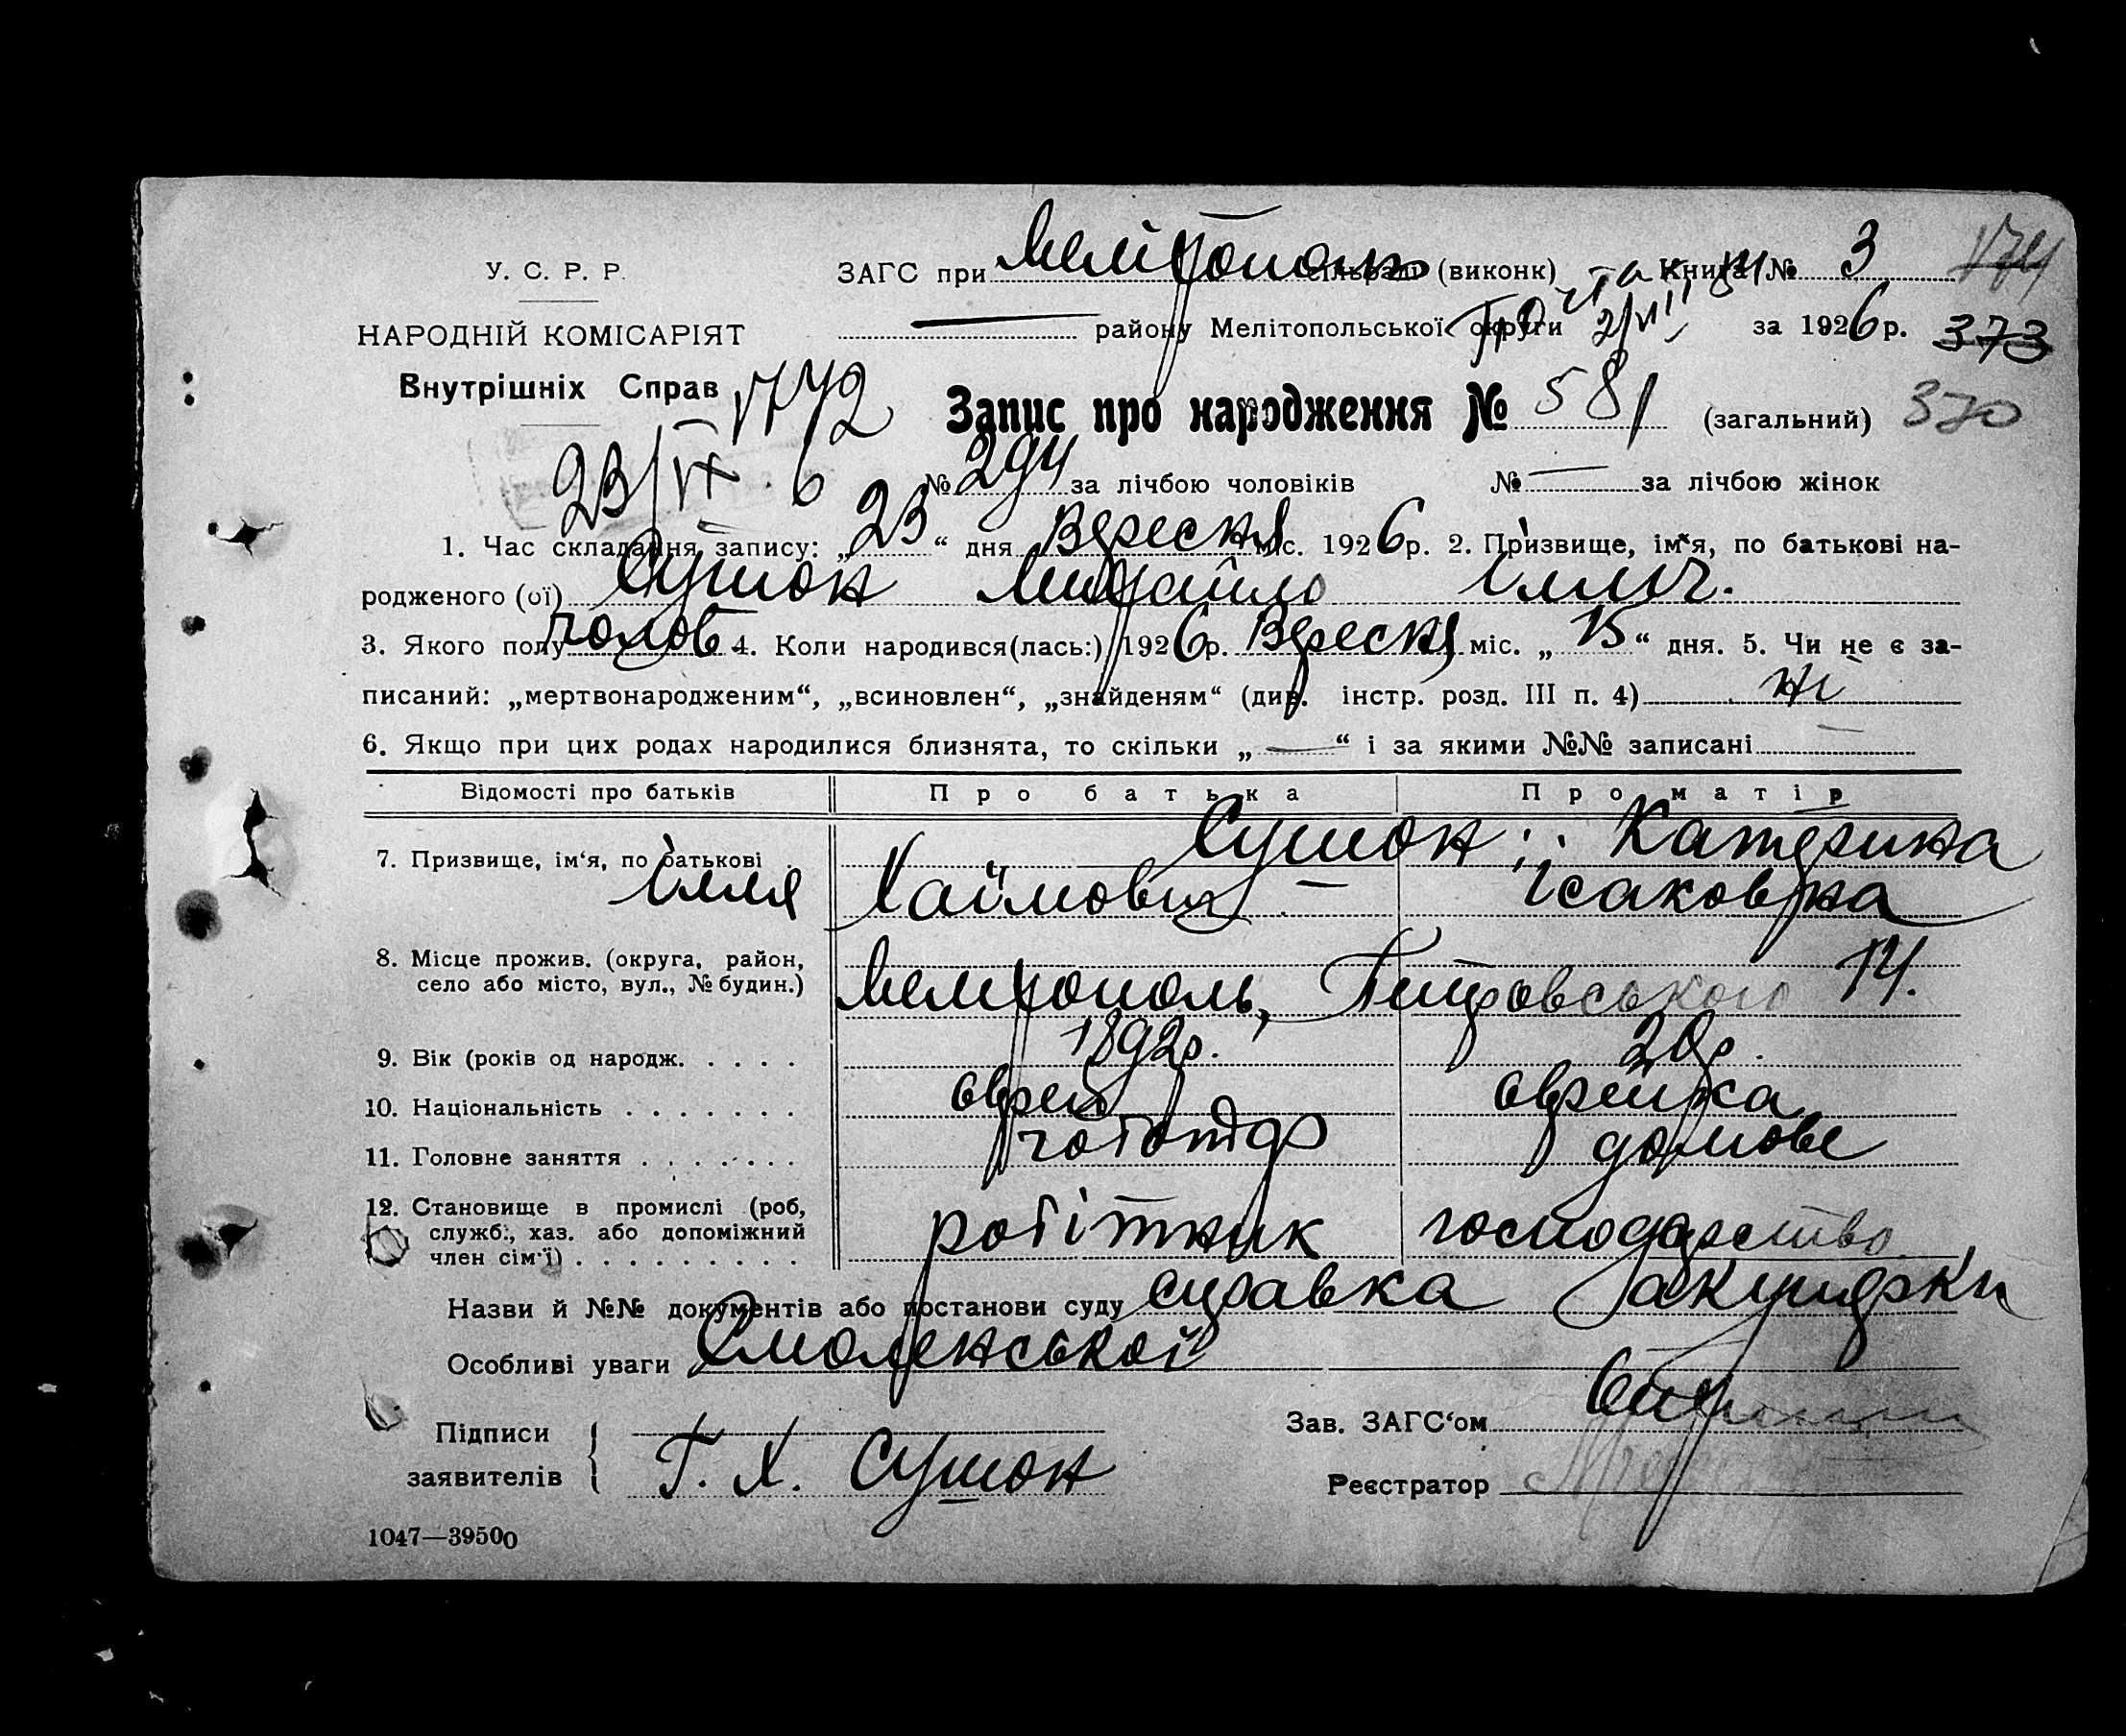 У. С. Р. Р.
ЗАГС при Мелітополь сільраді (виконк) Книга № 3 174
НАРОДНІЙ КОМІСАРІЯТ
району Мелітопольської округи 2/VII за 1926 р. 373
Внутрішніх Справ 1772
Запис про народження № 581 (загальний) 370
23/IX. 6 № 294 за лічбою чоловіків № — за лічбою жінок
1. Час складання запису: „23“ дня Вересня міс. 1926 р. 2. Призвище, ім'я, по батькові на-
родженого (ої) Сушон Михайло Ілліч.
3. Якого полу чолов 4. Коли народився(лась:) 1926 р. Вересня міс. „15“ дня. 5. Чи не є за-
писаний: „мертвонародженим“, „всиновлен“, „знайденям“ (див. інстр. розд. III п. 4) ні
6. Якщо при цих родах народилися близнята, то скільки „—“ і за якими №№ записані —
Відомості про батьків Про батька Про матір
Сушон Катерина
7. Призвище, ім‘я, по батькові .
Ілля Хаїмович — Ісаковна
8. Місце прожив. (округа, район,
село або місто, вул., № будин.) Мелітополь, Петровського 14.
9. Вік (років од народж. . . . . 1892р. 20р.
10. Національність . . . . . . . єврей єврейка
11. Головне заняття . . . . . . . домове
12. Становище в промислі (роб,
служб., хаз. або допоміжний
член сім‘ї) . . . . . . . . . робітник господарство
Назви й №№ документів або постанови суду справка акушерки
Особливі уваги Смоленської
Зав. ЗАГС‘ом
Підписи
заявителів Г. Х. Сушон
Реєстратор
1047—39500